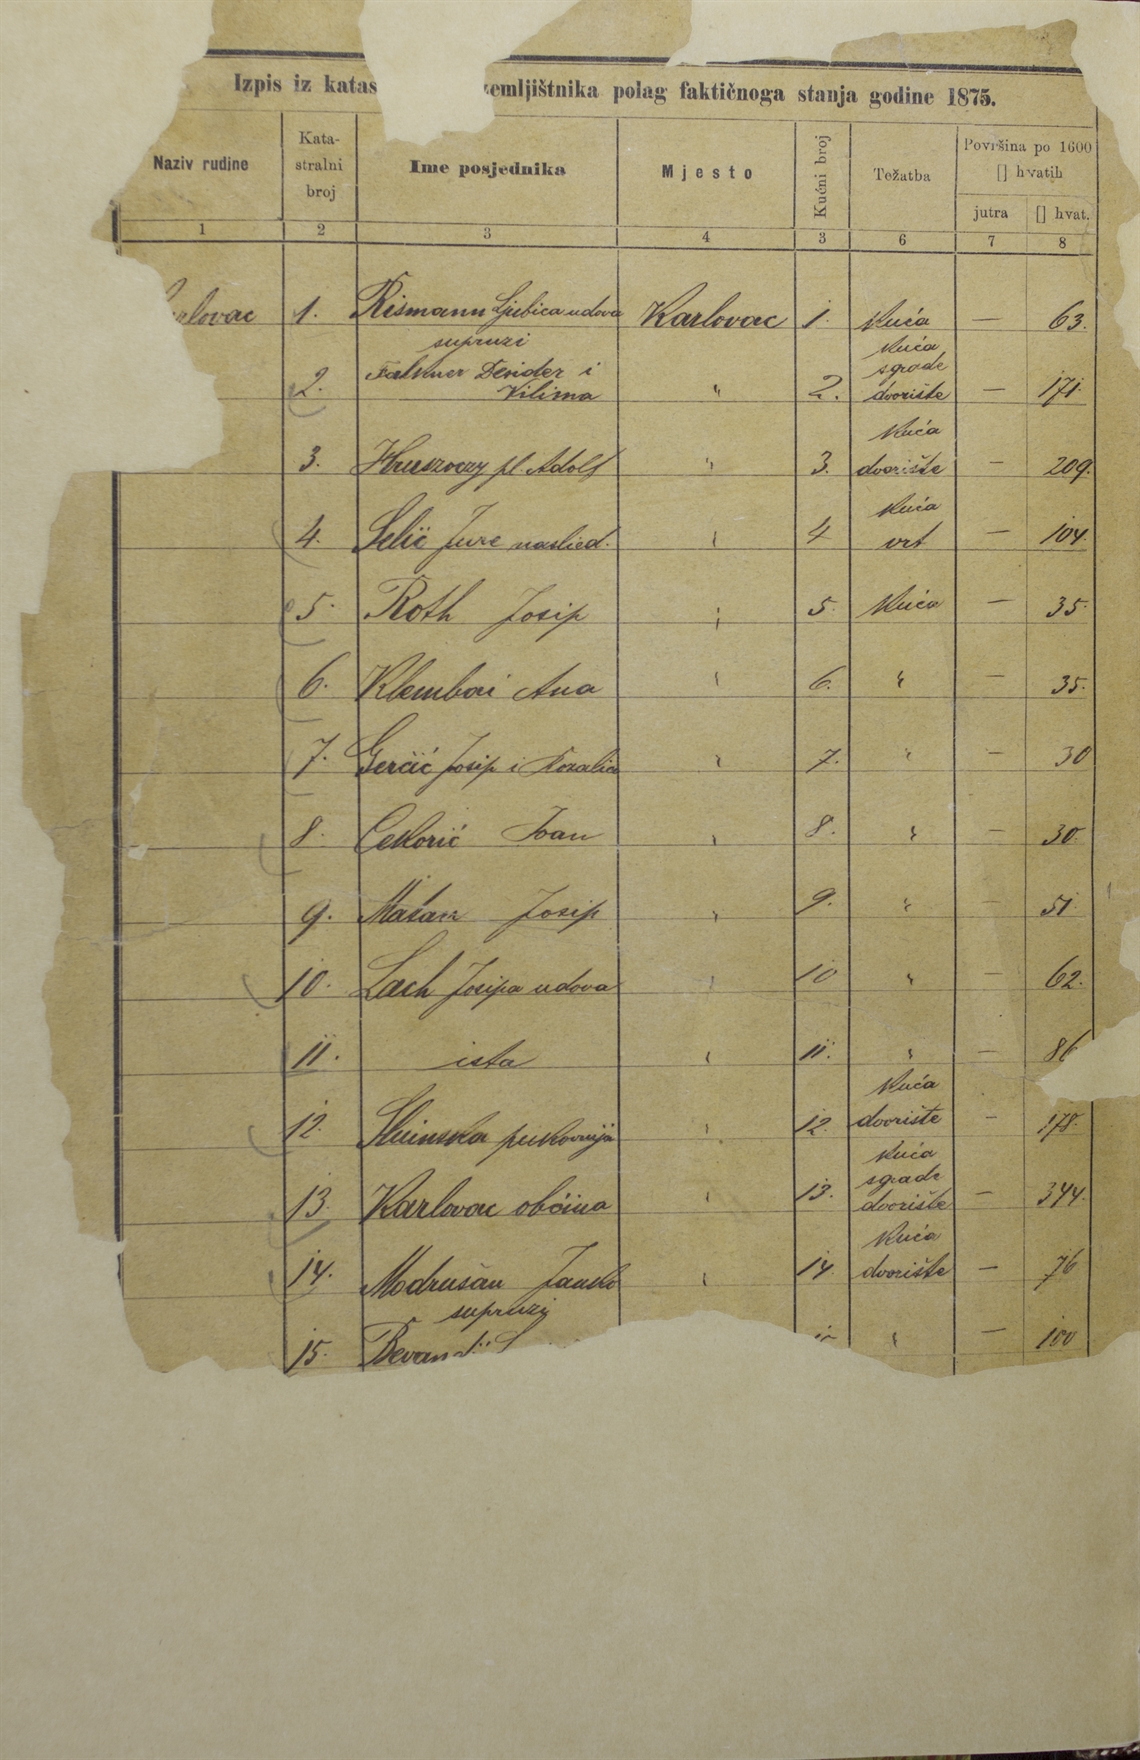 Izpis iz katas emljištnika polag faktičnoga stanja godine 1875.
Naziv rudine
Kata-
stralni
broj
Ime posjednika
Mjesto
Kućni broj
Težatba
Površina po 1600
[] hvatih
jutra [] hvat.
1 2 3 4 3 6 7 8
rlovac 1. Rismann Ljubica udova Karlovac 1. kuća — 63.
supruzi kuća
sgrade
2. Falkner Desider i " 2. dvorište — 171.
Vilima
kuća
3. pl. Adolf " 3. dvorište — 209.
kuća
4. Jure naslied. " 4 vrt — 104.
5. Roth Josip " 5. kuća — 35.
6. Ana " 6. " — 35.
7. Gerčić Josip i Rozalia " 7. " — 30
8. Ivan " 8. " — 30.
9. Matan Josip " 9. " — 51.
10. Lach Josipa udova " 10 " — 62.
11. ista " 11. " — 86
kuća
12. " 12. dvorište — 178.
kuća
sgrade
13. Karlovac občina " 13. dvorište — 344.
kuća
14. Modrušan Janko " 14. dvorište — 76
supruzi
15. " — 100